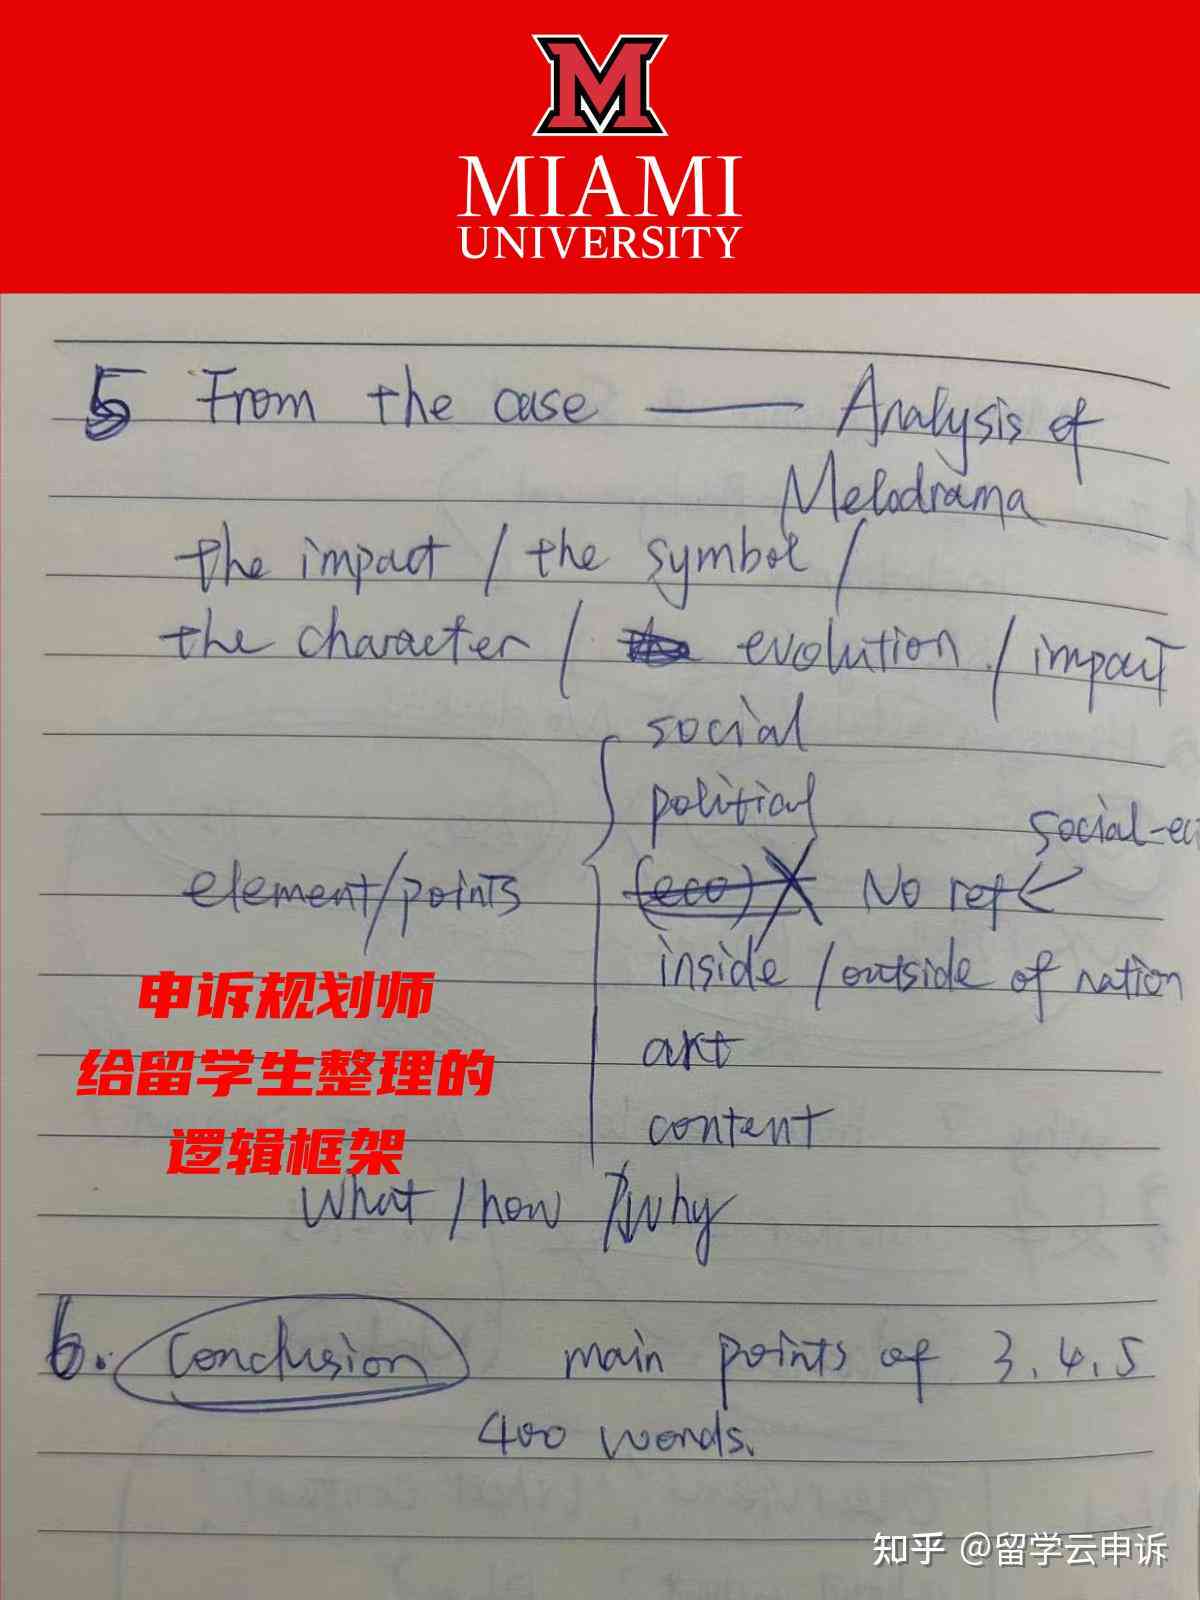 M
MIAMI
UNIVERSITY
5 From the case —— Analysis of
Melodrama
the impact / the symbol /
the character / evolution / impact
social
political
social-ec
element/points
(eco) No ref <
inside / outside of nation
art
content
申诉规划师
给留学生整理的
逻辑框架
What / how / why
6. Conclusion main points of 3. 4. 5
400 words.
知乎 @留学云申诉